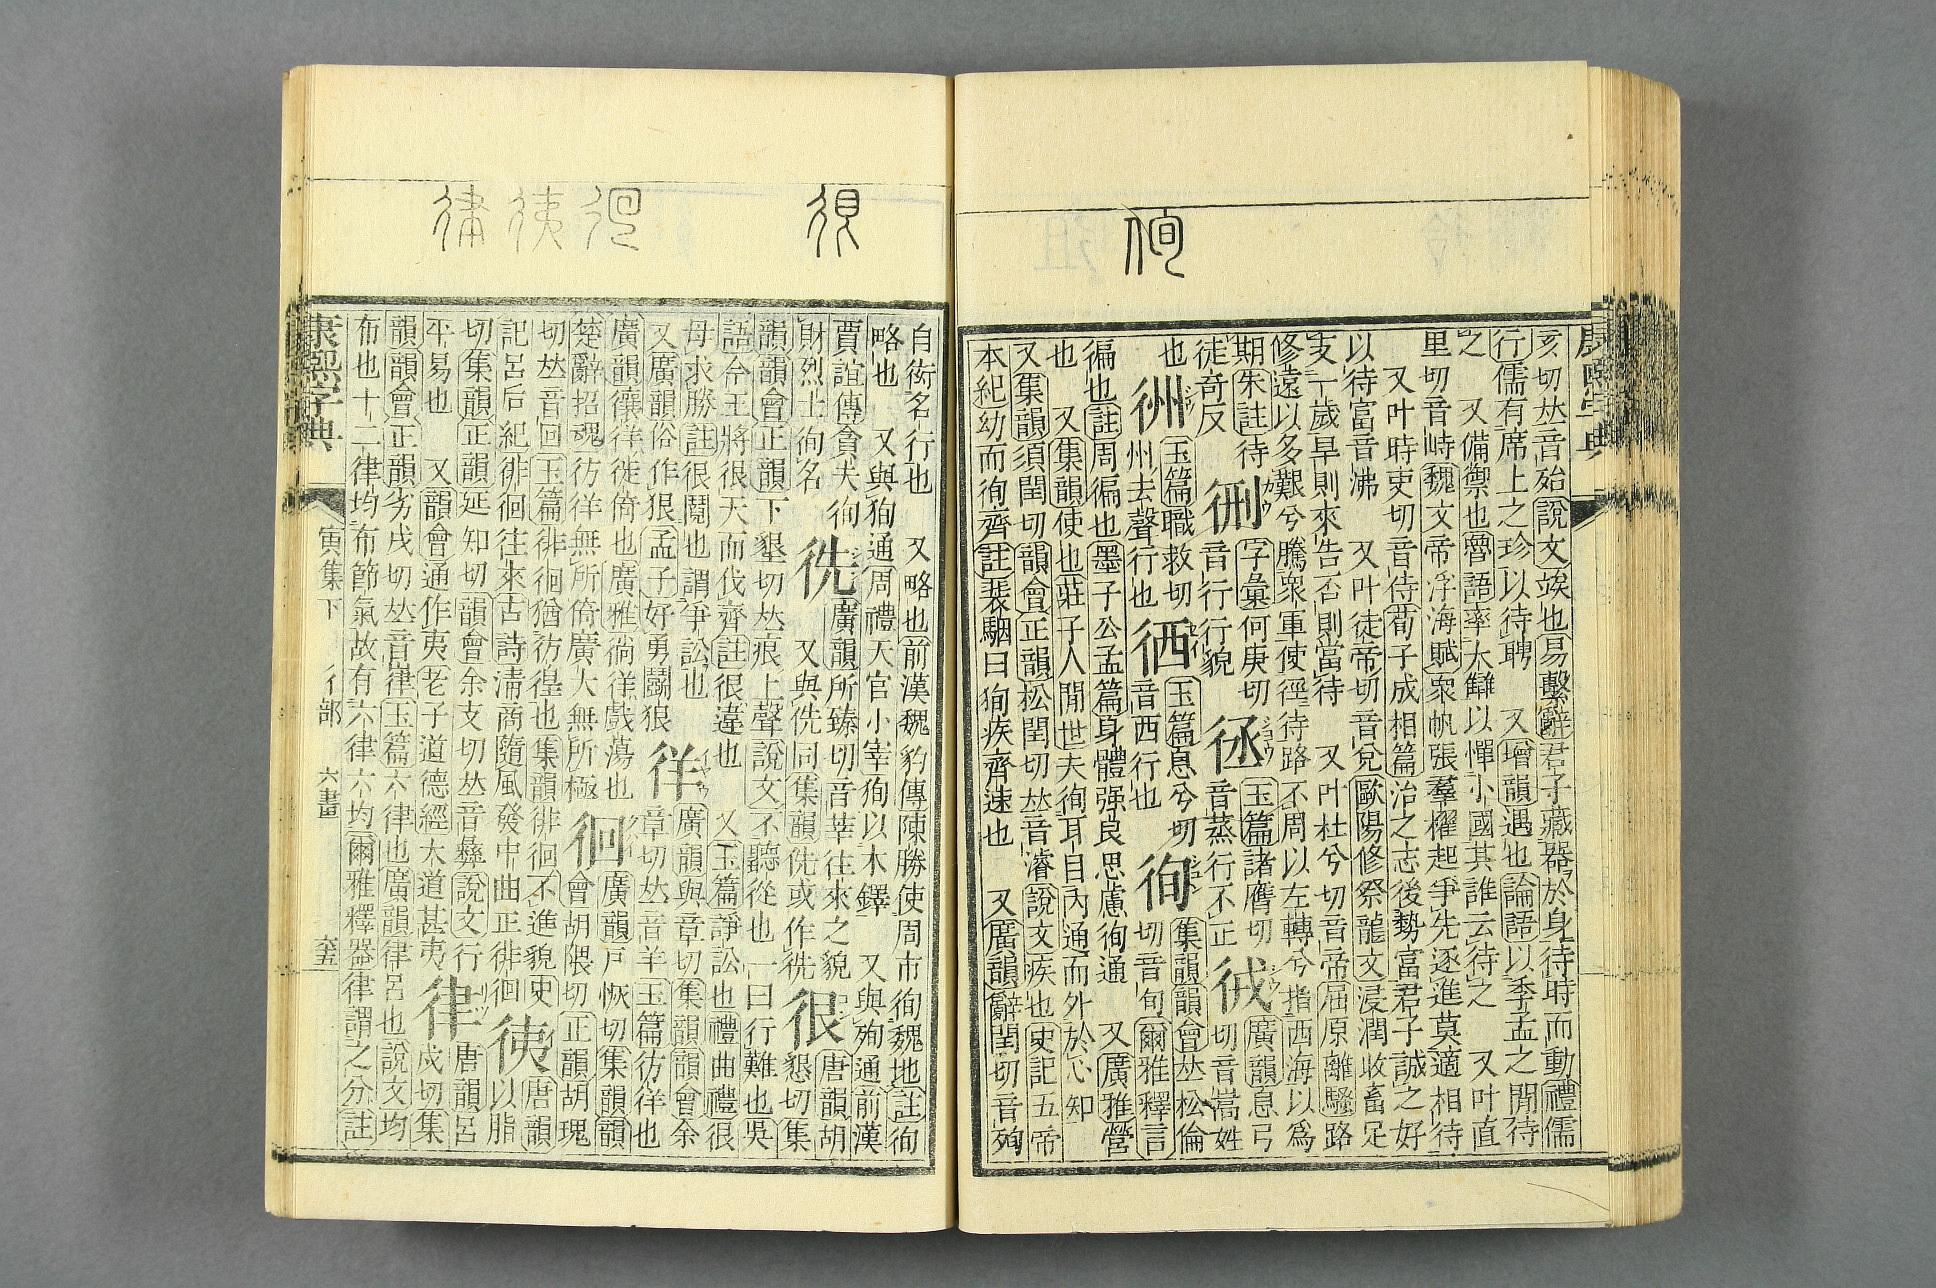 侚
康熙字典
亥切𠀤音殆說文竢也易繫辭君子藏器於身待時而動禮儒
行儒有席上之珍以待聘 又增韻遇也論語以季孟之閒待
之 又備禦也魯語率大讎以憚小國其誰云待之 又叶直
里切音峙魏文帝浮海賦衆帆張羣櫂起爭先逐進莫適相待
又叶時吏切音侍荀子成相篇治之志後勢富君子誠之好
以待富音沸 又叶徒帝切音兌歐陽修祭龍文浸潤收畜足
支一歲早則來告否則當待 又叶杜兮切音帝屈原離騷路
修遠以多艱兮騰衆軍使徑待路不周以左轉兮指西海以爲
期朱註待徒奇反 𧗪字彙何庚切音行行貌 徎玉篇諸膺切音蒸行不正 㣝廣韻息弓切音嵩姓
也 㣙玉篇職救切州去聲行也 徆玉篇息兮切音西行也 徇集韻韻會𠀤松倫切音旬爾雅釋言
徧也註周徧也墨子公孟篇身體强良思慮徇通 又廣雅營
也 又集韻使也莊子人閒世夫徇耳目內通而外於心知
又集韻須閏切韻會正韻松閏切𠀤音濬說文疾也史記五帝
本紀幼而徇齊註裴駰曰徇疾齊速也 又廣韻辭閏切音殉
很
徊 徚 律
自衒名行也 又略也前漢魏豹傳陳勝使周市徇魏地註徇
略也 又與狥通周禮天官小宰狥以木鐸 又與殉通前漢
賈誼傳貪夫徇財烈士徇名 㣤廣韻所臻切音莘往來之貌 又與侁同集韻侁或作㣤 很唐韻胡懇切集
韻韻會正韻下墾切𠀤痕上聲說文不聽從也一曰行難也吳
語今王將很天而伐齊註很違也 又玉篇諍訟也禮曲禮很
毋求勝註很鬩也謂爭訟也
又廣韻俗作狠孟子好勇鬭狠 徉廣韻與章切集韻韻會余章切𠀤音羊玉篇彷徉也
廣韻忀徉徙倚也廣雅徜徉戲蕩也
楚辭招魂彷徉無所倚廣大無所極 徊廣韻戸恢切集韻韻會胡隈切正韻胡瑰
切𠀤音回玉篇徘徊猶彷徨也集韻徘徊不進貌史
記呂后紀徘徊往來古詩淸商隨風發中曲正徘徊 㣢唐韻以脂
切集韻正韻延知切韻會余支切𠀤音彝說文行
平易也 又韻會通作夷老子道德經大道甚夷 律唐韻呂戌切集
韻韻會正韻劣戌切𠀤音𡸈玉篇六律也廣韻律呂也說文均
布也十二律均布節氣故有六律六均爾雅釋器律謂之分註
康熙字典 寅集下 彳部 六畫